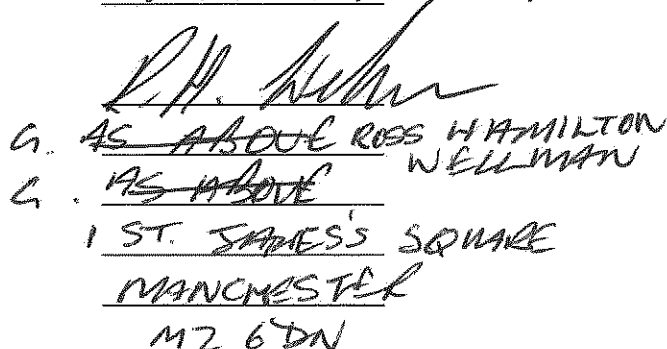 R.H. Wellman
G. AS ABOVE ROSS HAMILTON
WELLMAN
G. AS ABOVE
1 ST. JAMES'S SQUARE
MANCHESTER
M2 6DN